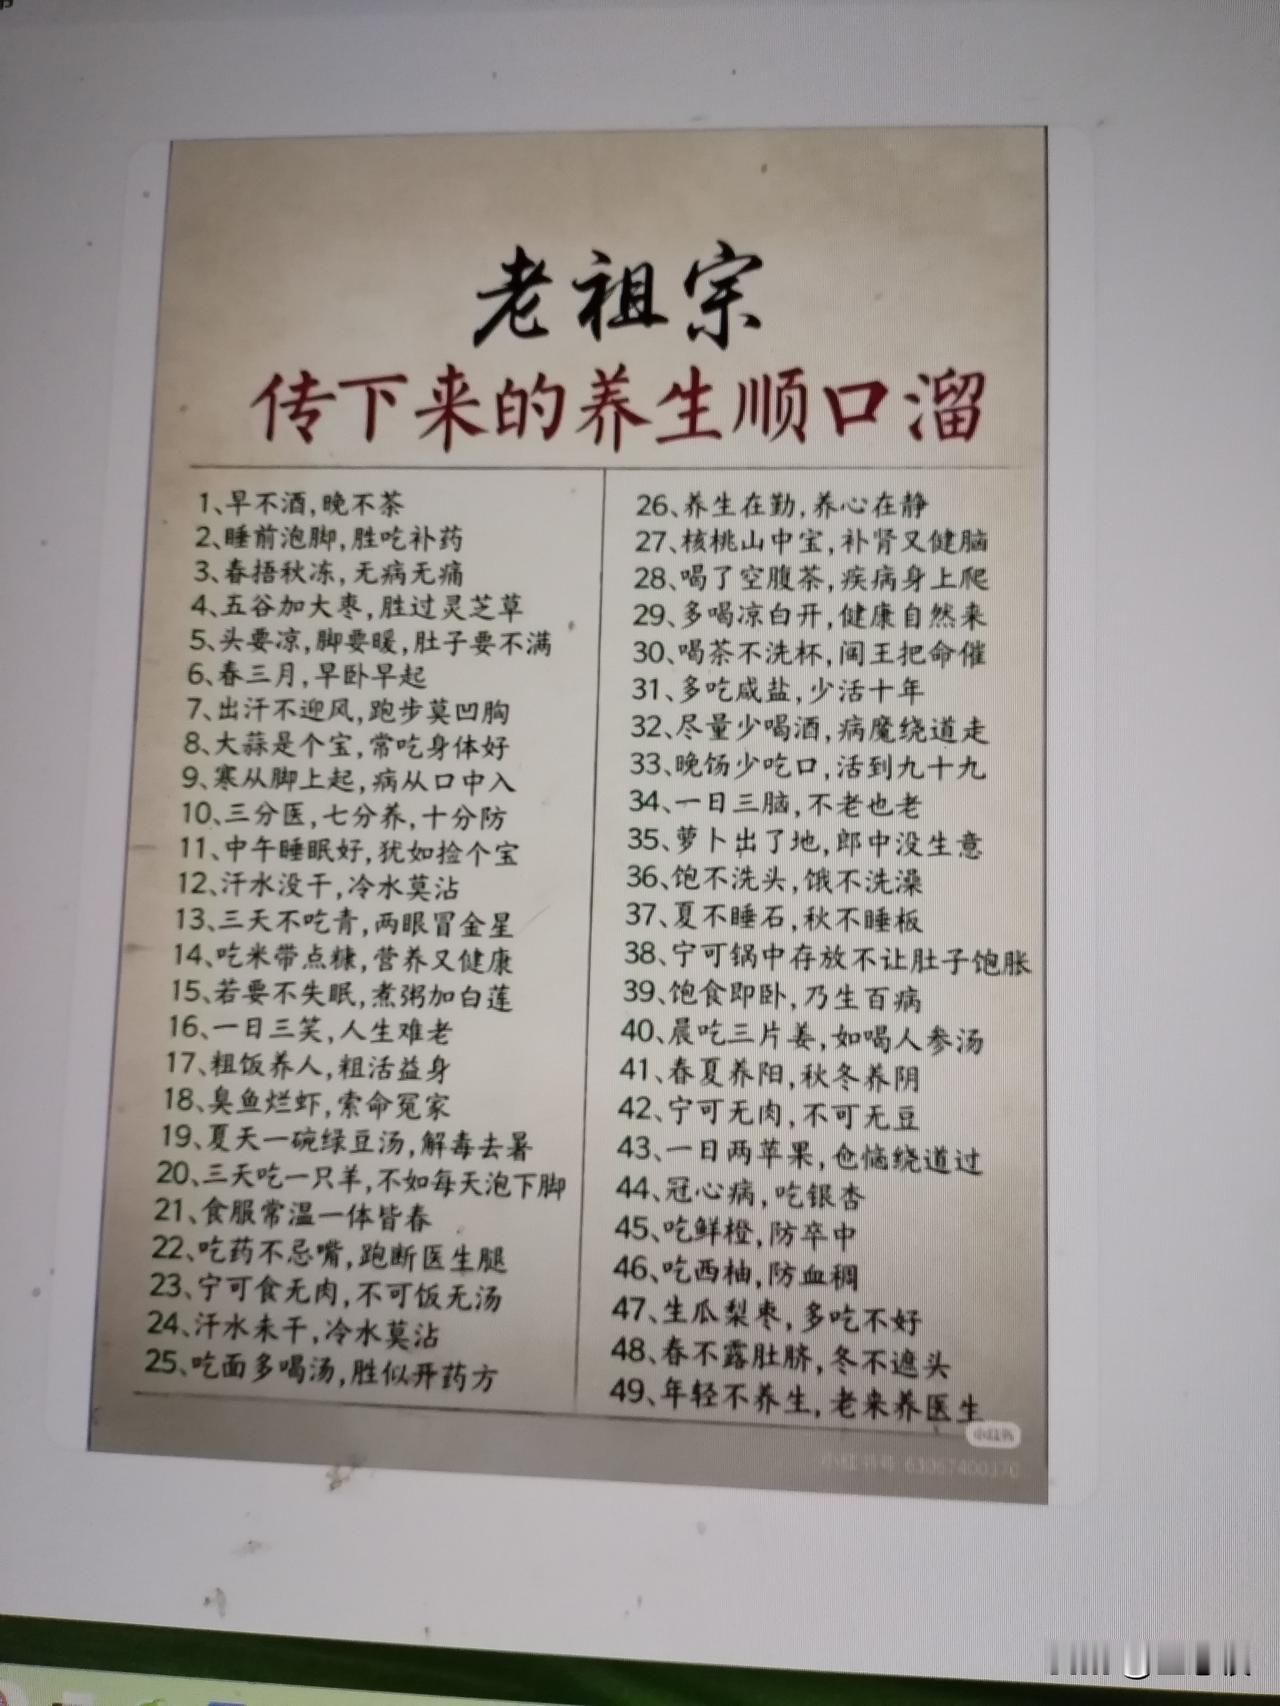 老祖宗
传下来的养生顺口溜
1、早不酒,晚不茶
2、睡前泡脚,胜吃补药
3、春捂秋冻,无病无痛
4、五谷加大枣,胜过灵芝草
5、头要凉,脚要暖,肚子要不满
6、春三月,早卧早起
7、出汗不迎风,跑步莫凹胸
8、大蒜是个宝,常吃身体好
9、寒从脚上起,病从口中入
10、三分医,七分养,十分防
11、中午睡眠好,犹如捡个宝
12、汗水没干,冷水莫沾
13、三天不吃青,两眼冒金星
14、吃米带点糠,营养又健康
15、若要不失眠,煮粥加白莲
16、一日三笑,人生难老
17、粗饭养人,粗活益身
18、臭鱼烂虾,索命冤家
19、夏天一碗绿豆汤,解毒去暑
20、三天吃一只羊,不如每天泡下脚
21、食服常温一体皆春
22、吃药不忌嘴,跑断医生腿
23、宁可食无肉,不可饭无汤
24、汗水未干,冷水莫沾
25、吃面多喝汤,胜似开药方
26、养生在勤,养心在静
27、核桃山中宝,补肾又健脑
28、喝了空腹茶,疾病身上爬
29、多喝凉白开,健康自然来
30、喝茶不洗杯,阎王把命催
31、多吃咸盐,少活十年
32、尽量少喝酒,病魔绕道走
33、晚饧少吃口,活到九十九
34、一日三脑,不老也老
35、萝卜出了地,郎中没生意
36、饱不洗头,饿不洗澡
37、夏不睡石,秋不睡板
38、宁可锅中存放不让肚子饱胀
39、饱食即卧,乃生百病
40、晨吃三片姜,如喝人参汤
41、春夏养阳,秋冬养阴
42、宁可无肉,不可无豆
43、一日两苹果,仓恼绕道过
44、冠心病,吃银杏
45、吃鲜橙,防卒中
46、吃西柚,防血稠
47、生瓜梨枣,多吃不好
48、春不露肚脐,冬不遮头
49、年轻不养生,老来养医生
小红书
小红书号 63067400370